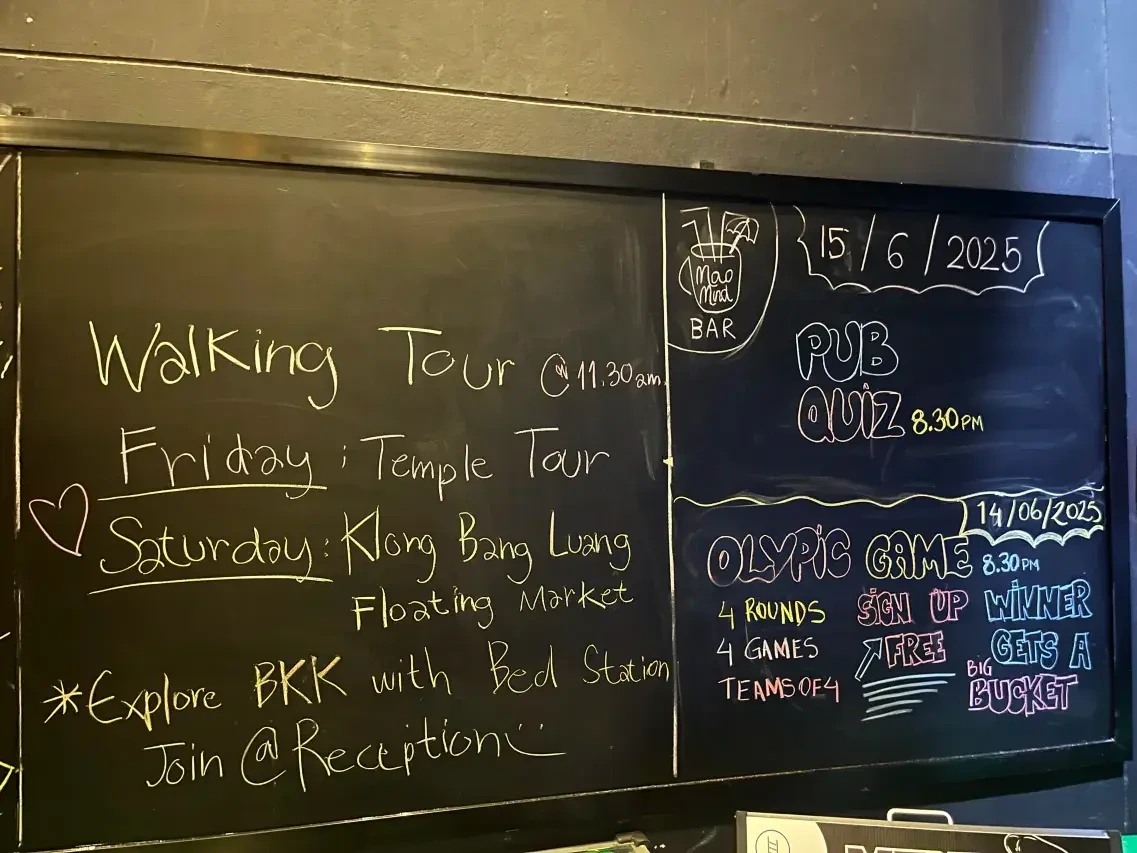 Walking Tour @ 11.30 am
Friday ; Temple Tour
Saturday: Klong Bang Luang
Floating Market
*Explore BKK with Bed Station
Join @Reception
Mao
Mind
BAR
15/6/2025
PUB
QUIZ 8.30PM
14/06/2025
OLYPIC GAME 8.30PM
4 ROUNDS
4 GAMES
TEAMS OF 4
SIGN UP
FREE
WINNER
GETS A
BIG
BUCKET